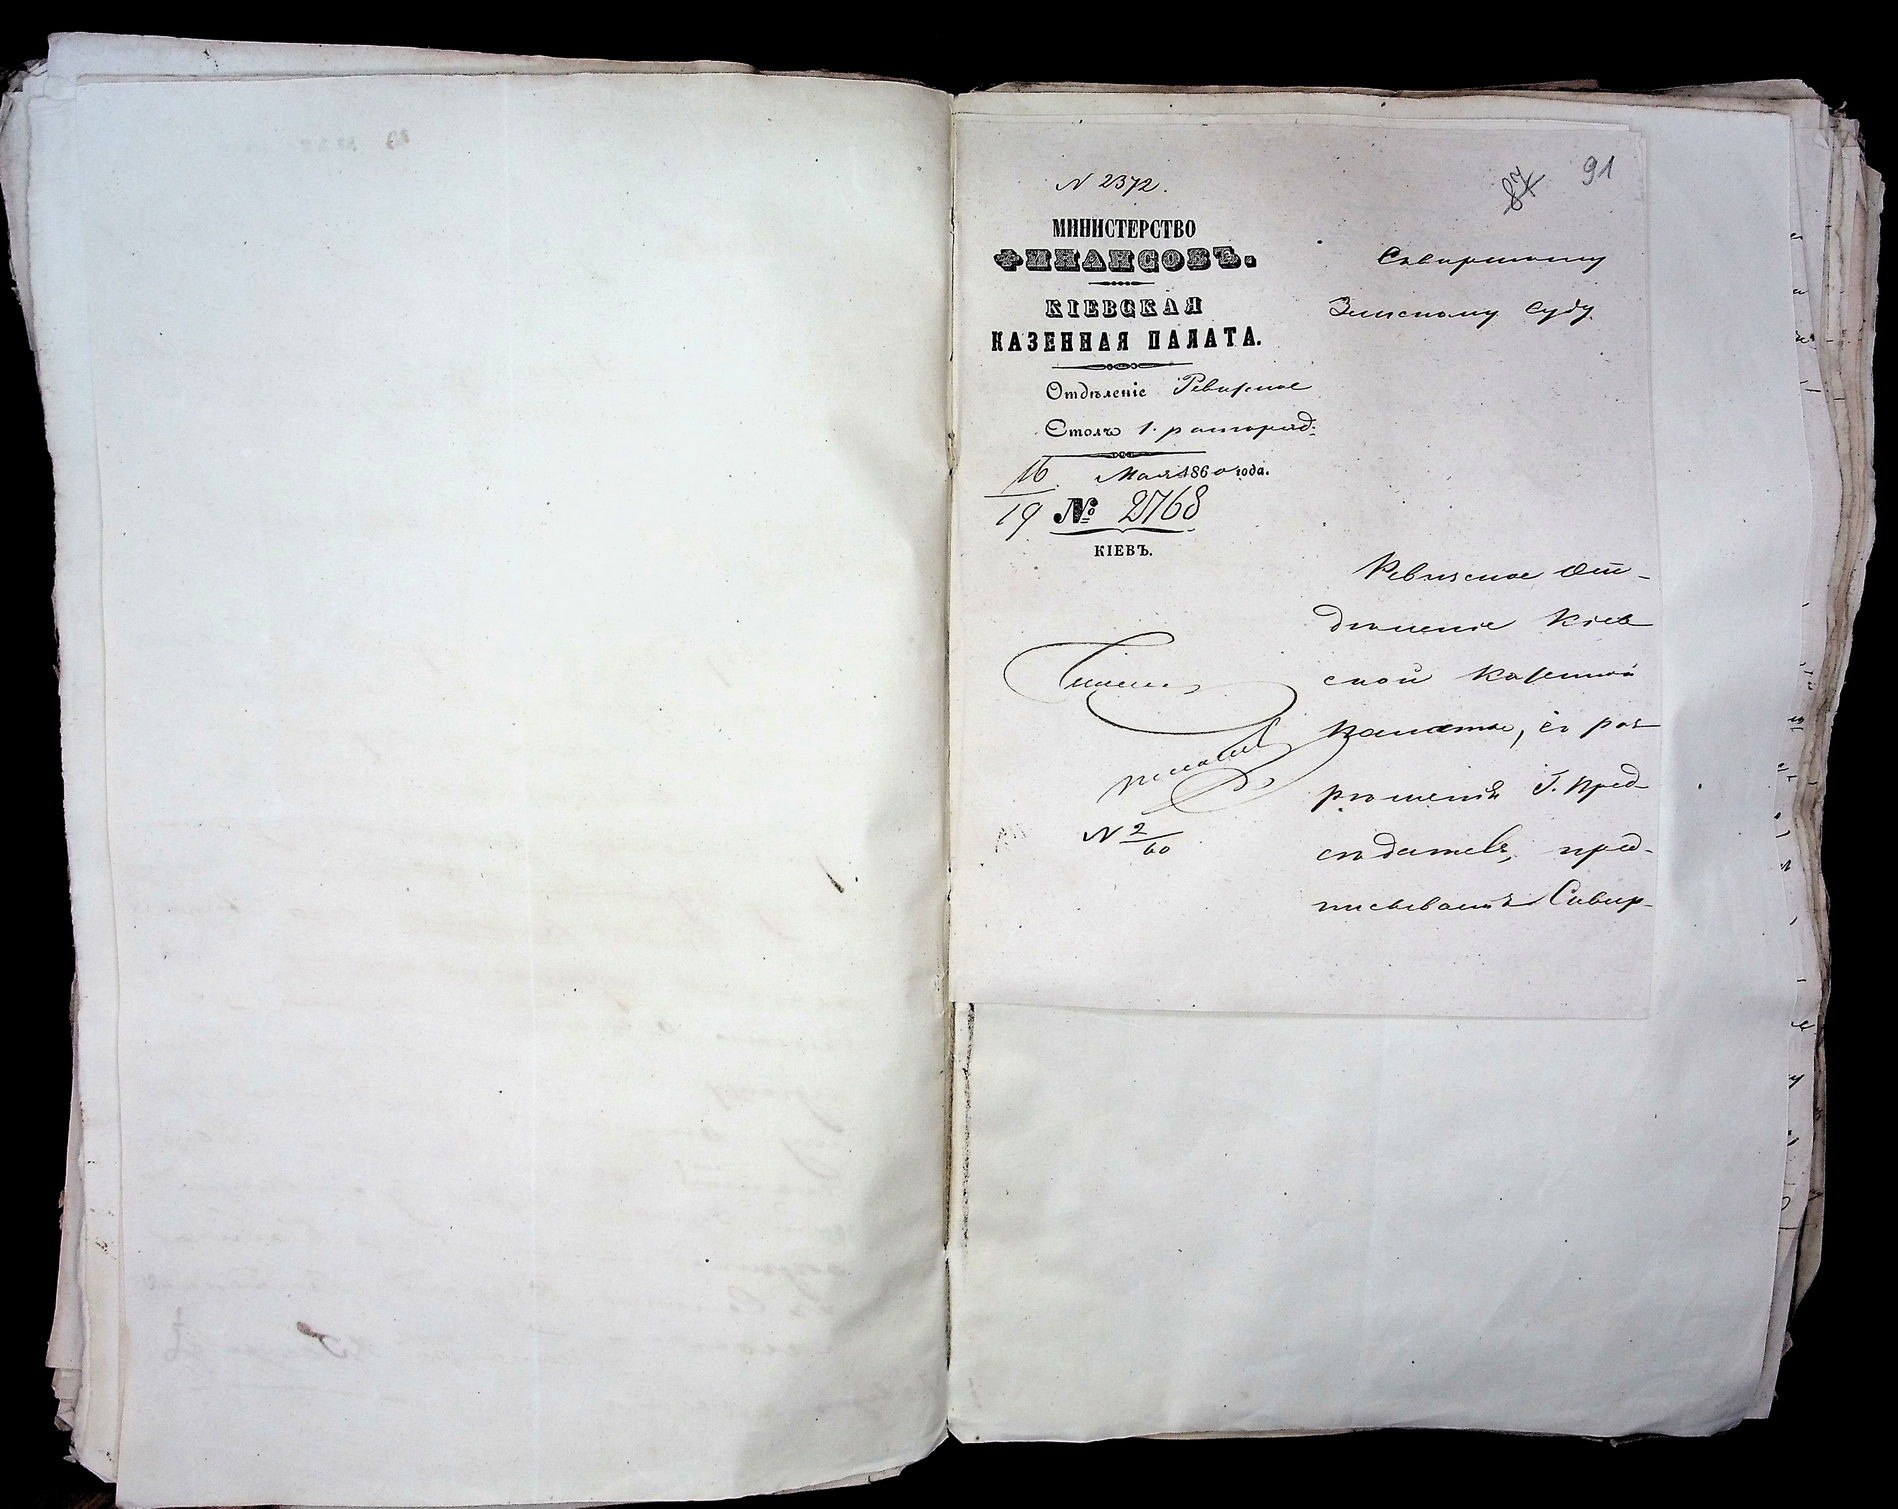 N 2372.
87
91
МИНИСТЕРСТВО
ФИНАНСОВЪ.
КІЕВСКАЯ
КАЗЕННАЯ ПАЛАТА.
Отдѣленіе Ревизское
Столъ 1. распоряд:
16 Мая 1860 года.
19 № 2768
КІЕВЪ.
Сквирскому
Земскому Суду.
Ревизское От-
дѣленіе Кіев
ской Казенной
Палаты, съ раз
рѣшенія Г. Пред
сѣдателя, пред-
писываетъ Сквир-
N 2/60